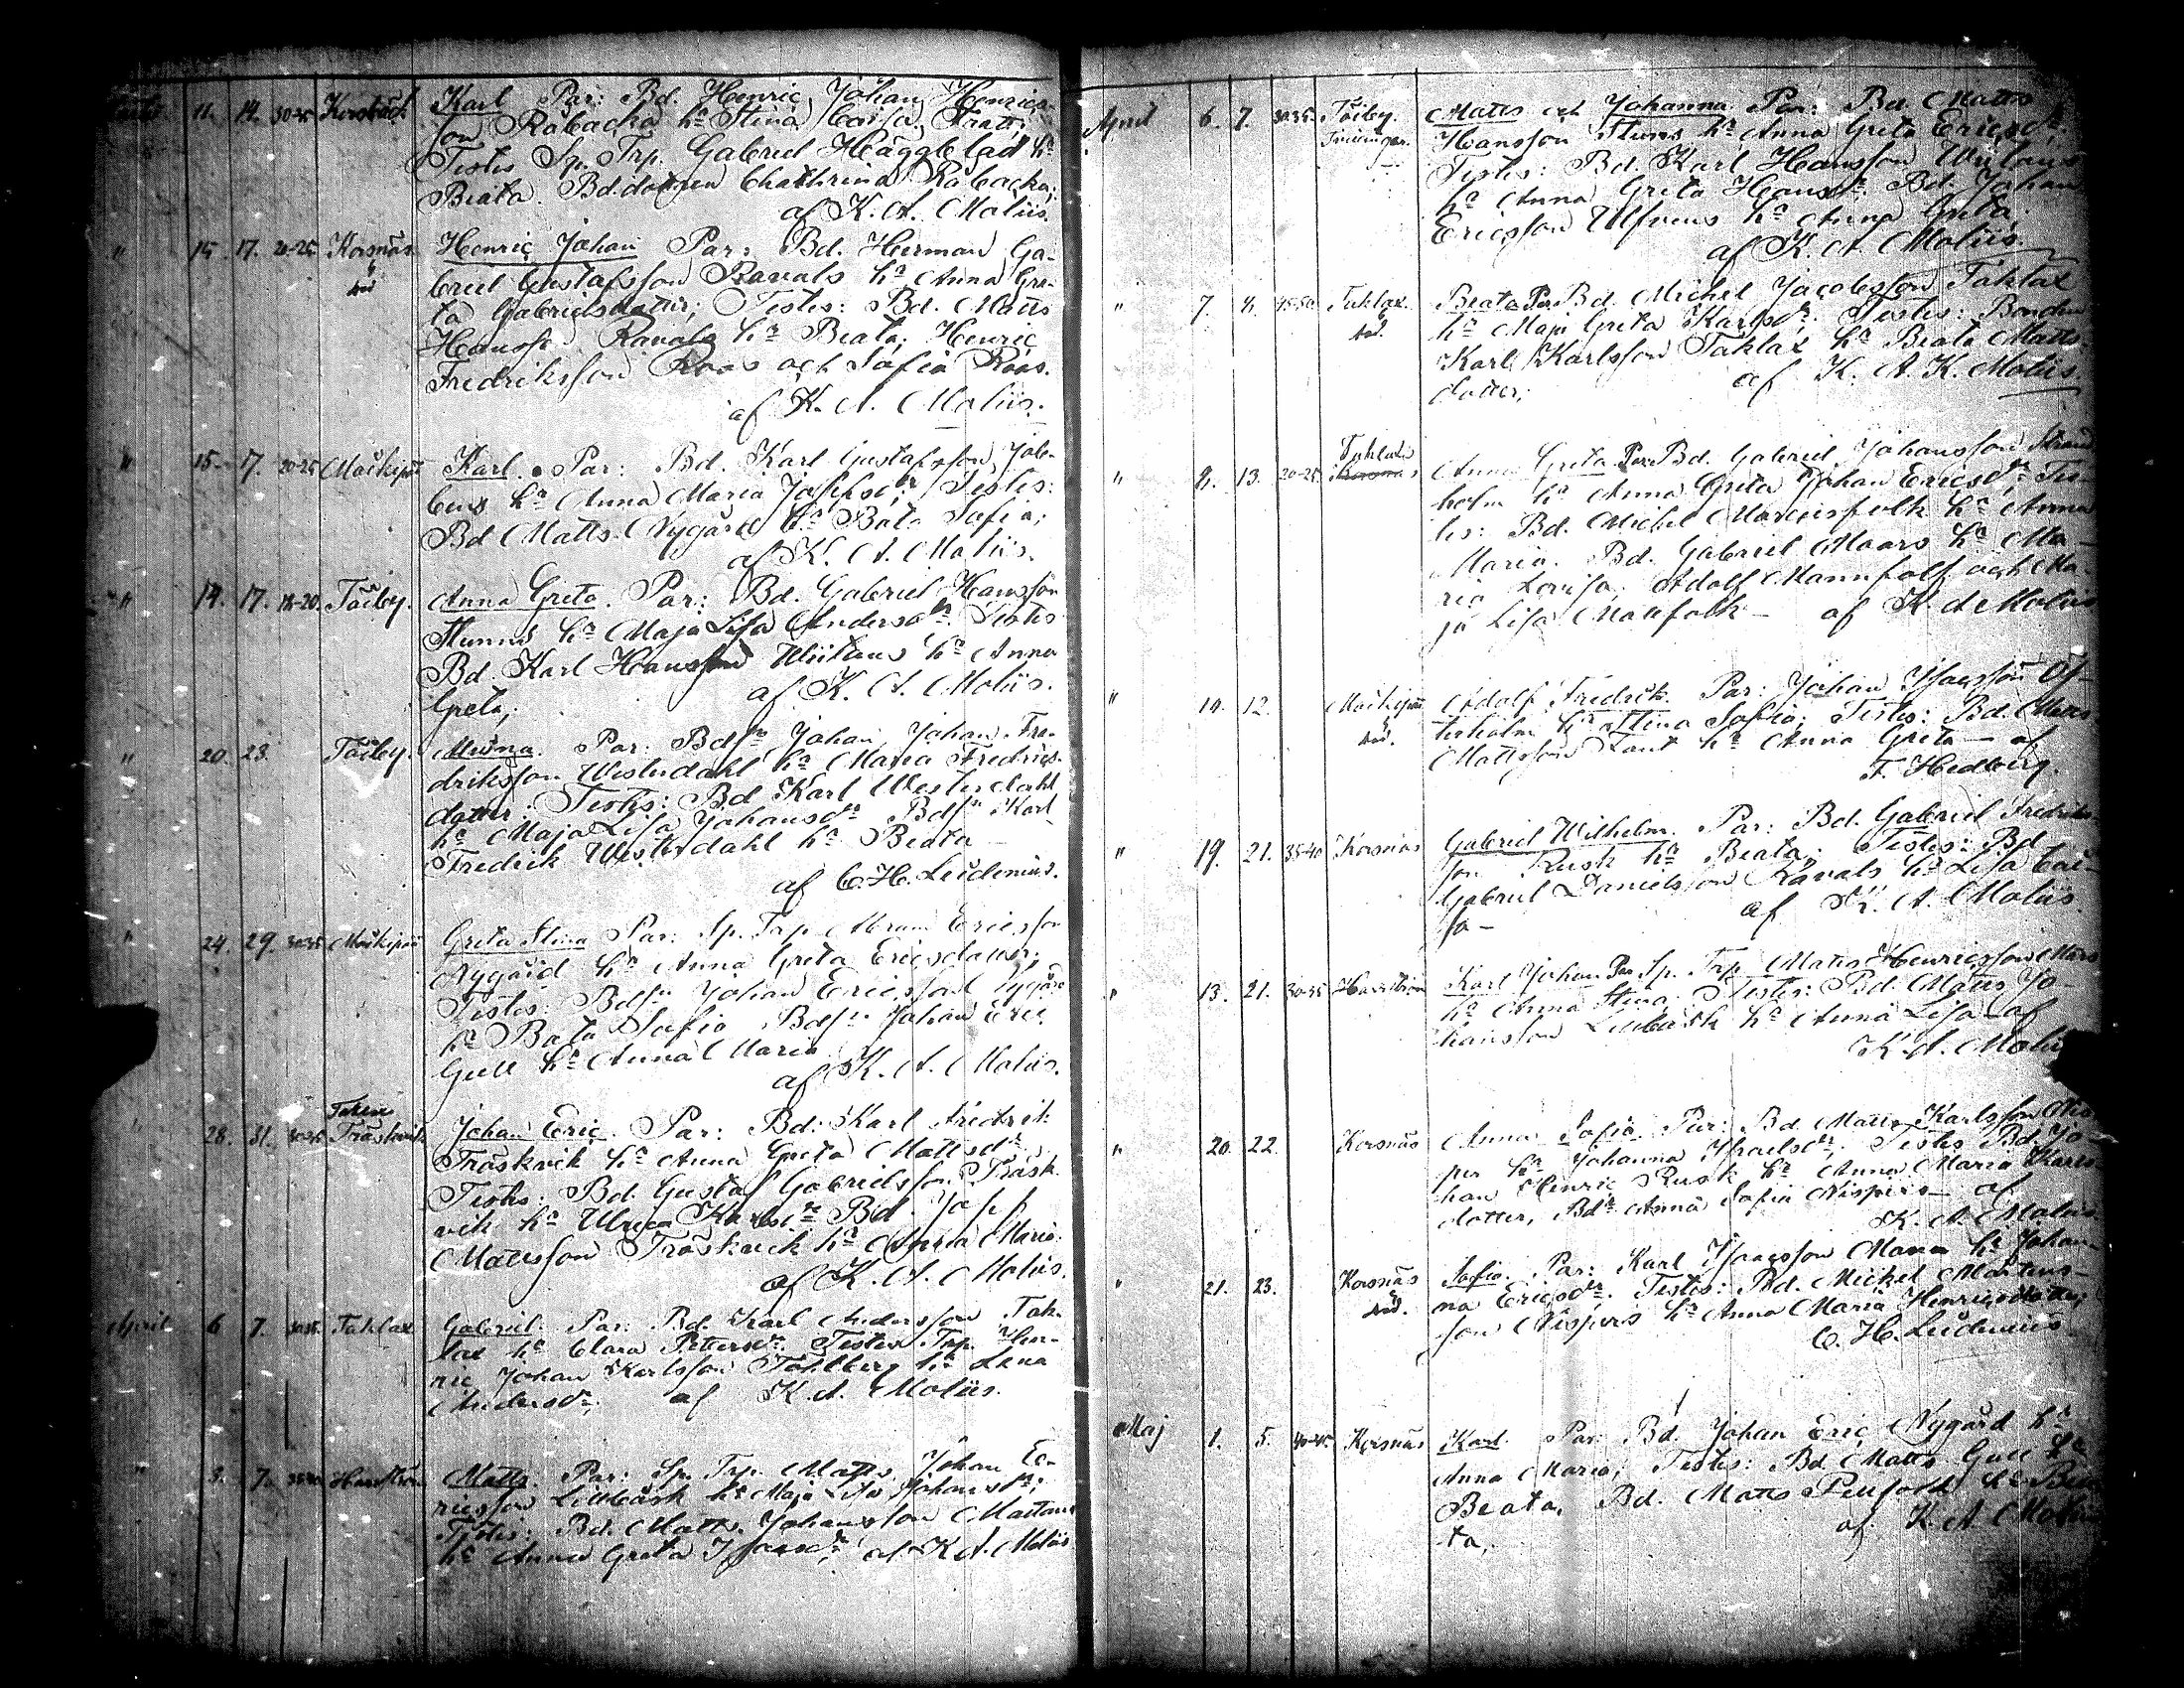 11. 14. 30-35 Korsbäck Karl Par: Bd. Henric Johan Henrics-
son Råbacka hᵃ Stina Caisa Fantt;
Testes Sp. Trp. Gabriel Hägglblad hᵃ
Beata. Bd.dottren Chathrina Råbacka;
af K. A. Moliis.
" 15 17. 20-25 Korsnäs Henric Johan Par: Bd. Herman Ga-
briel Gustafsson Ravals hᵃ Anna Gre-
ta Gabrielsdotter; Testes: Bd. Matts
Hansson Ravals hᵃ Beata; Henric
Fredriksson Roos och Sofia Roos.
af K. A. Moliis.
" 15. 17. 20-25 Karl. Par: Bd. Karl Gustafsson
hᵃ Anna Maria Josefsdr; Testes:
Bd Matts Nygård hᵃ Bata Sofia;
af K. A. Moliis.
" 14. 17. 18-20. Töiby. Anna Greta. Par: Bd. Gabriel Hansson
Stunns hᵃ Maja Lisa Andersdr. Testes
Bd. Karl Hansson Wiitans hᵃ Anna
Greta; af K. A. Moliis.
" 20. 23. Töiby. Par: Bdsn Johan Johan Fre-
driksson Westerdahl hᵃ Maria Fredrics-
dotter: Testes: Bd Karl Westerdahl
hᵃ Maja Lisa Johansdr Bdsn Karl
Fredrik Westerdahl hᵃ Beata
af C. H. Leidenius.
" 24. 29. 30-35 Greta Stina Par: Sp. Trp Abram Ericsson
Nygård hᵃ Anna Greta Ericsdotter;
Testes: Bdsn Johan Ericsson Nygård
hᵃ Bata Sofia Bdsn Johan Eric
Gull hᵃ Anna Maria
af K. A. Moliis.
28. 31. 30-35 Träskvik Johan Eric. Par: Bd. Karl Fredrik
Träskvik hᵃ Anna Greta Mattsdr.
Testes: Bd. Gustaf Gabrielsson Träsk-
vik hᵃ Ulrica Karlsdr Bd. Josef
Mattsson Träskvick hᵃ Anna Maria
af K. A. Moliis.
April 6 7. 30-35. Taklax Gabriel. Par: Bd. Karl Andersson Tak-
lax hᵃ Clara Pettersdr. Testes Trp. Hen-
ric Johan Karlsson Tahlberg hᵃ Lena
Andersdr; af K. A. Moliis.
" 3. 7. Harrström Matts. Par: Sp. Trp. Matts Johan Ec-
ricsson Lillbåsk hᵃ Maja Lisa Johansdr;
Testes: Bd. Matts Johansson Mattans
hᵃ Anna Greta Isacsdr; af K A. Moliis
April 6. 7. 30-35. Töiby. Matts och Johanna Par: Bd. Matts
Tvillingar. Hansson Stuns hᵃ Anna Greta Ericsdr,
Testes: Bd. Karl Hansson Wiitans
hᵃ Anna Greta Hansdr. Bd. Johan
Ericsson Ulfvens hᵃ Anna Greta;
af K. A. Moliis.
" 7. 8. 45-50 Taklax Beata Par Bd. Michel Jacobsson Taklax
hᵃ Maja Greta Karlsdr. Testes: Bonden
Karl Karlsson Taklax hᵃ Beata Matts-
dotter; af K. A. K. Moliis.
Taklax
" 8. 13. 20-25 Korsnäs Anna Greta Par Bd. Gabriel Johansson Strand
holm hᵃ Anna Greta Johan Ericsdr. Tes-
tes: Bd. Michel Mannsfolk hᵃ Anna
Maria. Bd. Gabriel Maars hᵃ Ma-
ria Lovisa; Adolf Mannfolk och Ma-
ja Lisa Manfolk — af K A Moliis
" 10. 12. Adolf Fredrik. Par: Johan Isacsson Ös-
terholm hᵃ Stina Sofia; Testes: Bd. Matts
Mattsson Fant hᵃ Anna Greta — af
F. Hedberg.
" 19. 21. 35-40 Korsnäs Gabriel Wilhelm. Par: Bd. Gabriel Fredriks-
son Rusk hᵃ Beata; Testes: Bd
Gabriel Danielsson Ravals hᵃ Lisa Cai-
sa — af K. A. Moliis.
" 13. 21. 30-35 Harrström Karl Johan Par Sp. Trp Matts Henricsson Mars
hᵃ Anna Stina. Testes: Bd. Matts Jo
hansson Lillbåsk hᵃ Anna Lisa af
K. A. Moliis
" 20. 22. Korsnäs Anna Sofia Par: Bd. Matts Karlsson Nis
per hᵃ Johanna Israelsdr; Testes Bd. Jo-
han Henric Rusk hᵃ Anna Maria Karls
dotter, Bdr Anna Sofia Nispers — af
K. A. Moliis
" 21. 23. Korsnäs Sofia. Par: Karl Isacsson Mann hᵃ Johan-
na Ericsdr. Testes: Bd. Mickel Mårtens-
son Nispers hᵃ Anna Maria Henricsdotter;
C. H. Leidenius
Maj 1. 5. 40-45. Korsnäs Karl. Par: Bd. Johan Eric Nygård hᵃ
Anna Maria; Testes: Bd Matts Gull hᵃ
Beata, Bd. Matts Penfolk hᵃ Bea-
ta, af K. A. Moliis